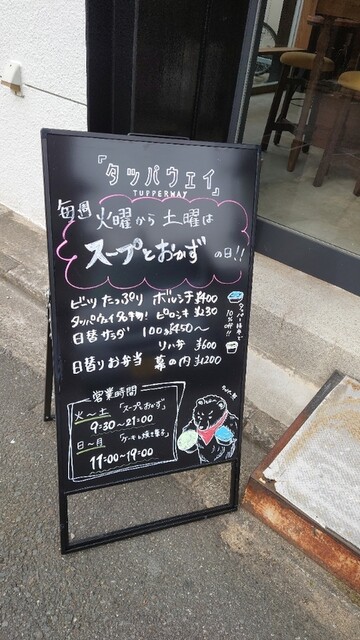 『タッパウェイ』
TUPPERWAY
毎週 火曜から土曜は
スープとおかず の日!!
ビーツたっぷり ボルシチ ¥400
タッパウェイ名物! ピロシキ ¥230
日替サラダ 100g ¥450〜
リハ亭 ¥600
日替りお弁当 幕の内 ¥1200
タッパー持参で
10%
off!!
営業時間
火〜土 「スープとおかず」
9:30〜21:00
日〜月 「ケーキと焼き菓子」
11:00〜19:00